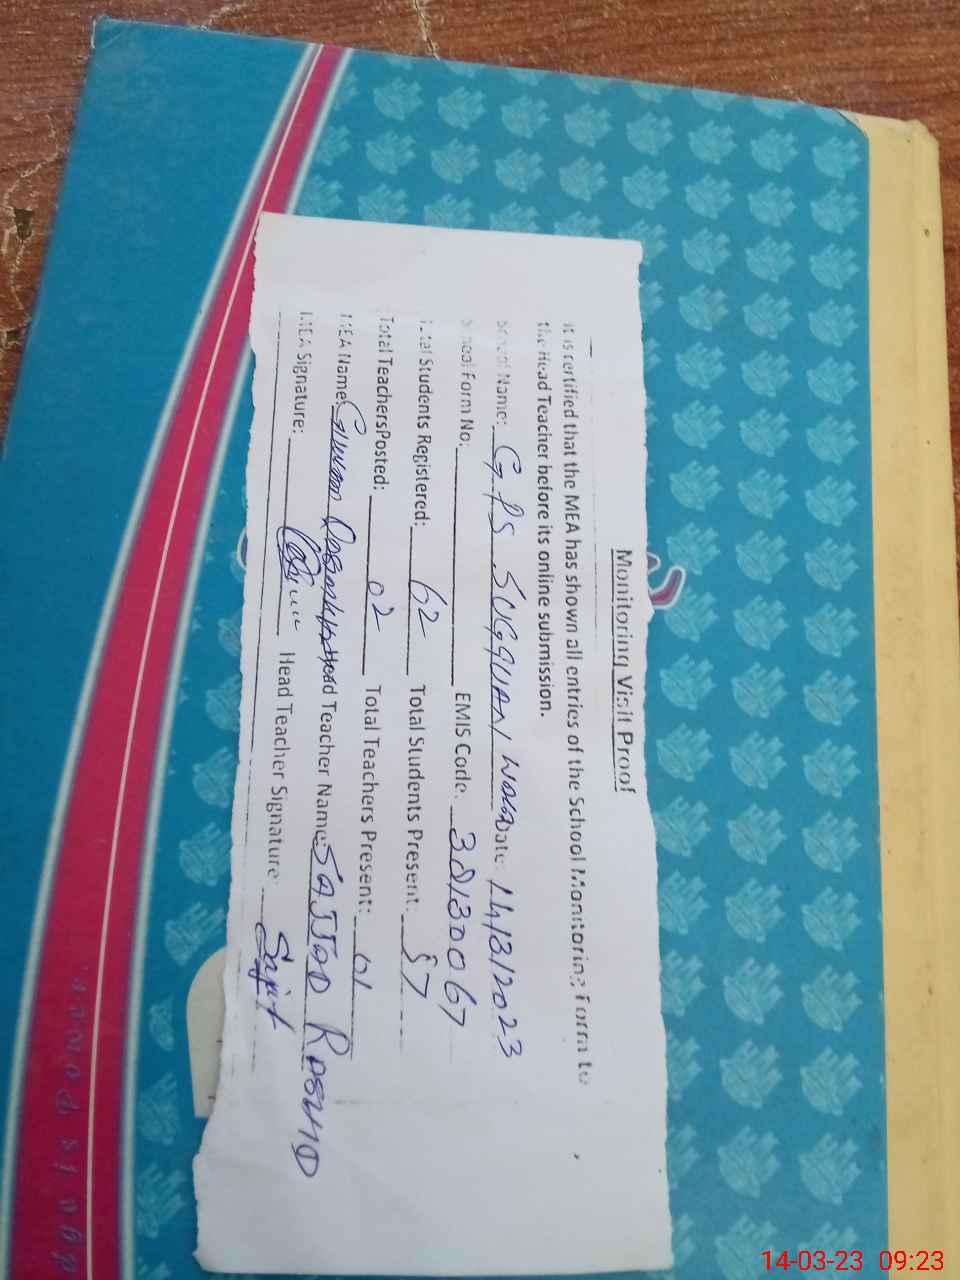 Monitoring Visit Proof
It is certified that the MEA has shown all entries of the School Monitoring Form to
the Head Teacher before its online submission.
School Name: GPS SUGGUAN Wala Date: 14/3/2023
School Form No: EMIS Code: 38130067
Total Students Registered: 62 Total Students Present: 57
Total TeachersPosted: 02 Total Teachers Present: 01
MEA Name: Head Teacher Name: SAJJAD RASHID
MEA Signature: Head Teacher Signature: Sajid
14-03-23 09:23